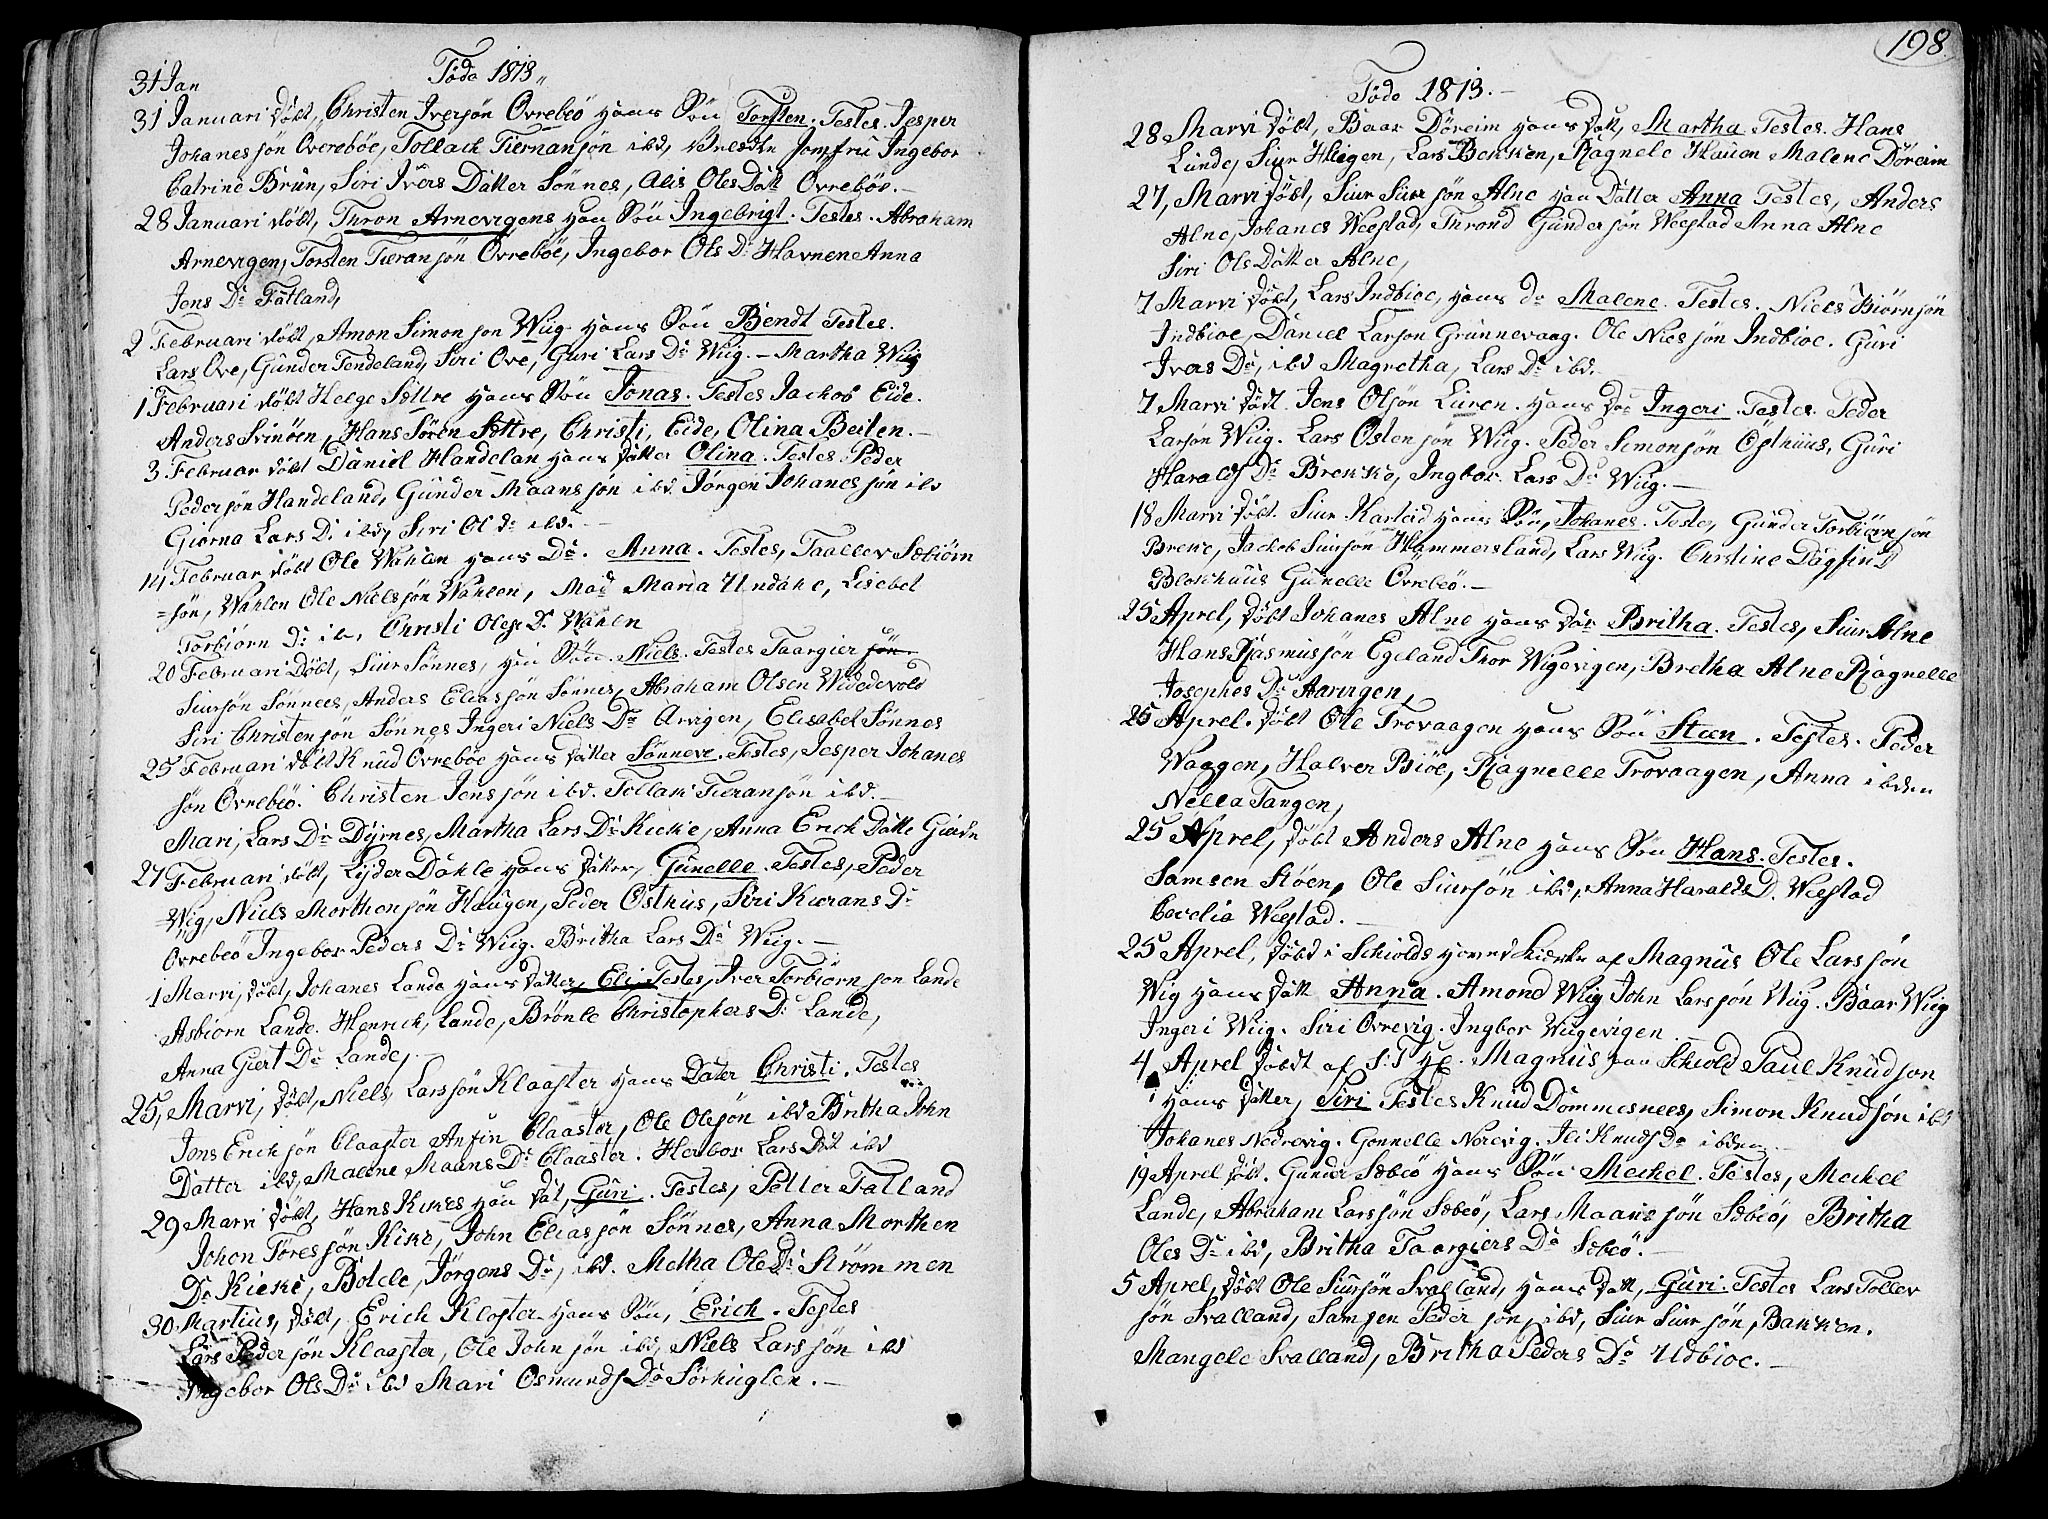 31 Jan
Föde 1813
31 Januari döbt, Christen Iversön Ovrebö hans Sön Torsten. Testes. Jesper
Johanessön Overeböe, Tollack Tiernansön ibd, Jomfru Ingebor
Catrine Brun, Siri Ivers Datter Sönnes, Alis Oles Datt Ovreböe.
28 Januari döbt, Thron Arnevigens han Sön Ingebrigt. Testes. Abraham
Arnevigen, Torsten Tieransön Ovreböe, Ingebor Ols Dr Havnen Anna
Jens Dr Fatland,
2 Februari döbt, Amon Simonson Wiig hans Sön Bendt Testes.
Lars Ove, Gunder Tendeland, Siri Ove, Guri Lars Dr Wiig. - Martha Wiig
1 Februari döbt Helge Sættre hans Sön Jonas. Testes Jachob Eide.
Anders Svinöen, Hans Sören Sættre, Christi, Eide, Olina Beiten.
3. Februar döbt Daniel Handelan hans datter Olina. Testes Peder
Pedersön Handeland, Gunder Maanssön ibd. Jörgen Johanessön ibd
Giorna Lars D. ibd, Siri Ol dr ibd.
14 Februar döbt Ole Wahlen hans Dr. Anna. Testes, Taallev Sæbiörn
=sön, Wahlen Ole Nielssön Wahlen, Mad Maria Undahl, Lisebet
Torbiörn Dr ib, Christi Oles Dr Wahlen
20 Februari Döbt, Siur Sönnes, han Sön. Niels. Testes Taargier sön
Siursön Sönnees, Anders Eliassön Sönnes, Abraham Olsen Widedevold
Siri Christensön Sönnes Ingeri Niels Dr Arvigen, Elisabet Sönnes
25 Februari döbt Knud Ovreböe hans datter Sönneve. Testes, Jesper Johanes
sön Ovrebö. Christen Jenssön ibd. Tollak Tieransön ibd.
Mari, Lars Dr Dyrnes, Martha Lars Dr Kicke, Anna Erich Datte
27 Februari döbt, Lyder Dahle hans datter, Gunelle. Testes, Peder
Wig, Niels Morthensön Haugen, Peder Osthus, Siri Kierans Dr
Ovrebö Ingebor Peders Dr Wiig. Britha Lars Dr Wiig.
1 Marvi, döbt, Johanes Lande hans datter, Eli. Testes, Iver Torbiörnson Lande
Asbiorn Lande. Henrich, Lande, Brönle Christophers Dr Lande,
Anna Giert Dr Lande,
25, Marvi, döbt, Niels Larssön Klaaster hans Dater Christi. Testes
Jens Ericksön Claaster Anfin Claaster, Ole Olesön ibd Britha John
Datter ibd, Malene Maans Dr Claaster. Herbor Lars Dtt ibd
29 Marvi döbt, Hans Kickes han dat, Guri. Testes, Petter Fatland
Johon Töressön Kicke, John Eliassön Sönnes, Anna Morthen
Dr Kicke, Botele, Jörgens Dr, ibd. Metha Ole Dr Strömmen
30 Martius, döbt, Erich Kloster hans Sön, Erich. Testes
Lars Pedersön Klaaster, Ole Johnsön ibd, Niels Larssön ibd
Ingebor Ols Dr ibd Mari Osmunds Dr Sörhuglen.
198
Föde 1813.
28 Marvi döbt, Baar Döreim hans datt, Martha Testes. Hans
Lunde, Siur Heigen, Lars Bekken, Ragnele Hauen Malene Döreim
27, Marvi döbt, Siur Siursön Alne han Datter Anna Testes, Anders
Alne, Johanes Weestad, Thrond Gundersön Weestad Anna Alne
Siri Ols Datter Alne,
7 Marvi döbt, Lars Indbioe, hans dr Malene. Testes. Niels Biörnsön
Indbioe, Daniel Larson Grunnevaag. Ole Nielssön Indbioe. Guri
Ivers Dr, ibd Magretha, Lars Dr ibd.
7 Marvi Födt. Jens Olsön Luren. hans dr Ingeri. Testes. Peder
Larsön Wiig. Lars Ostensön Wiig. Peder Simonsön Östhuus, Guri
Harolds Dr Brekke, Ingbor Lars Dr Wiig.
18 Marvi döbt. Siur Karteid hans Sön, Johanes. Teste, Gunder Torbiörnsön
Breke, Jackob Siursön Hammersland, Lars Wiig. Christine Dagfin D
Blokhuus Gunelle Ovreböe.
25 Aprel, döbt Johanes Alne hans dr Britha. Testes, Siur Alne
Hans Rasmussön Egeland Thor Wigevigen, Bretha Alne Ragnelle
Josephes Dr Aarvigen,
25 Aprel. döbt Ole Trovaagen hans Sön Steen. Testes. Peder
Waagen, Halver Biöe, Ragnelle Trovaagen, Anna ibden
Nella Tangen,
25 Aprel, döbt Anders Alne hans Sön Hans. Testes.
Samsen Skoen, Ole Siursön ibd, Anna Haralds D. Weestad
Cecelia Weestad.
25 Aprel, döbt i Schiolds hoved kierke af Magnus Ole Larssön
Wig hans datt Anna. Amond Wiig John Larssön Wiig. Baar Wiig
Ingeri Wiig. Siri Ovrevig. Ingbor Wiigevigen
4 Aprel döbdt af S:T Hr. Magnus paa Schiold Paul Knudson
i hans datter, Siri Testes Knud Dommesnees, Simon Knudsön ibd
Johanes Nedrevig. Gonnelle Norevig. Ili Knuds Dr ibden
19 Aprel döbt. Gunder Sæbeö hans Sön Meckel. Testes, Meckel
Lande, Abraham Larssön Sæbeö, Lars Maanssön Sæbeö, Britha
Oles Dr ibd, Britha Taargiers Dr Sæbeö.
5 Aprel, döbt Ole Siursön Svalland, hans datt, Guri. Testes Lars Tollev
sön Svalland, Samsen Pederson, ibd, Siur Siursön, Bakken.
Mangele Svalland, Britha Peders Dr Udbioe.